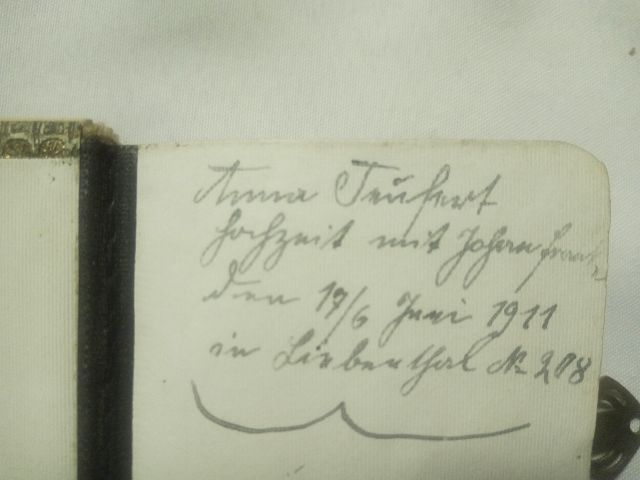 Anna Teufert
Hochzeit mit Johan Frantz
den 17/6 Juni 1911
in Lieberthal № 208